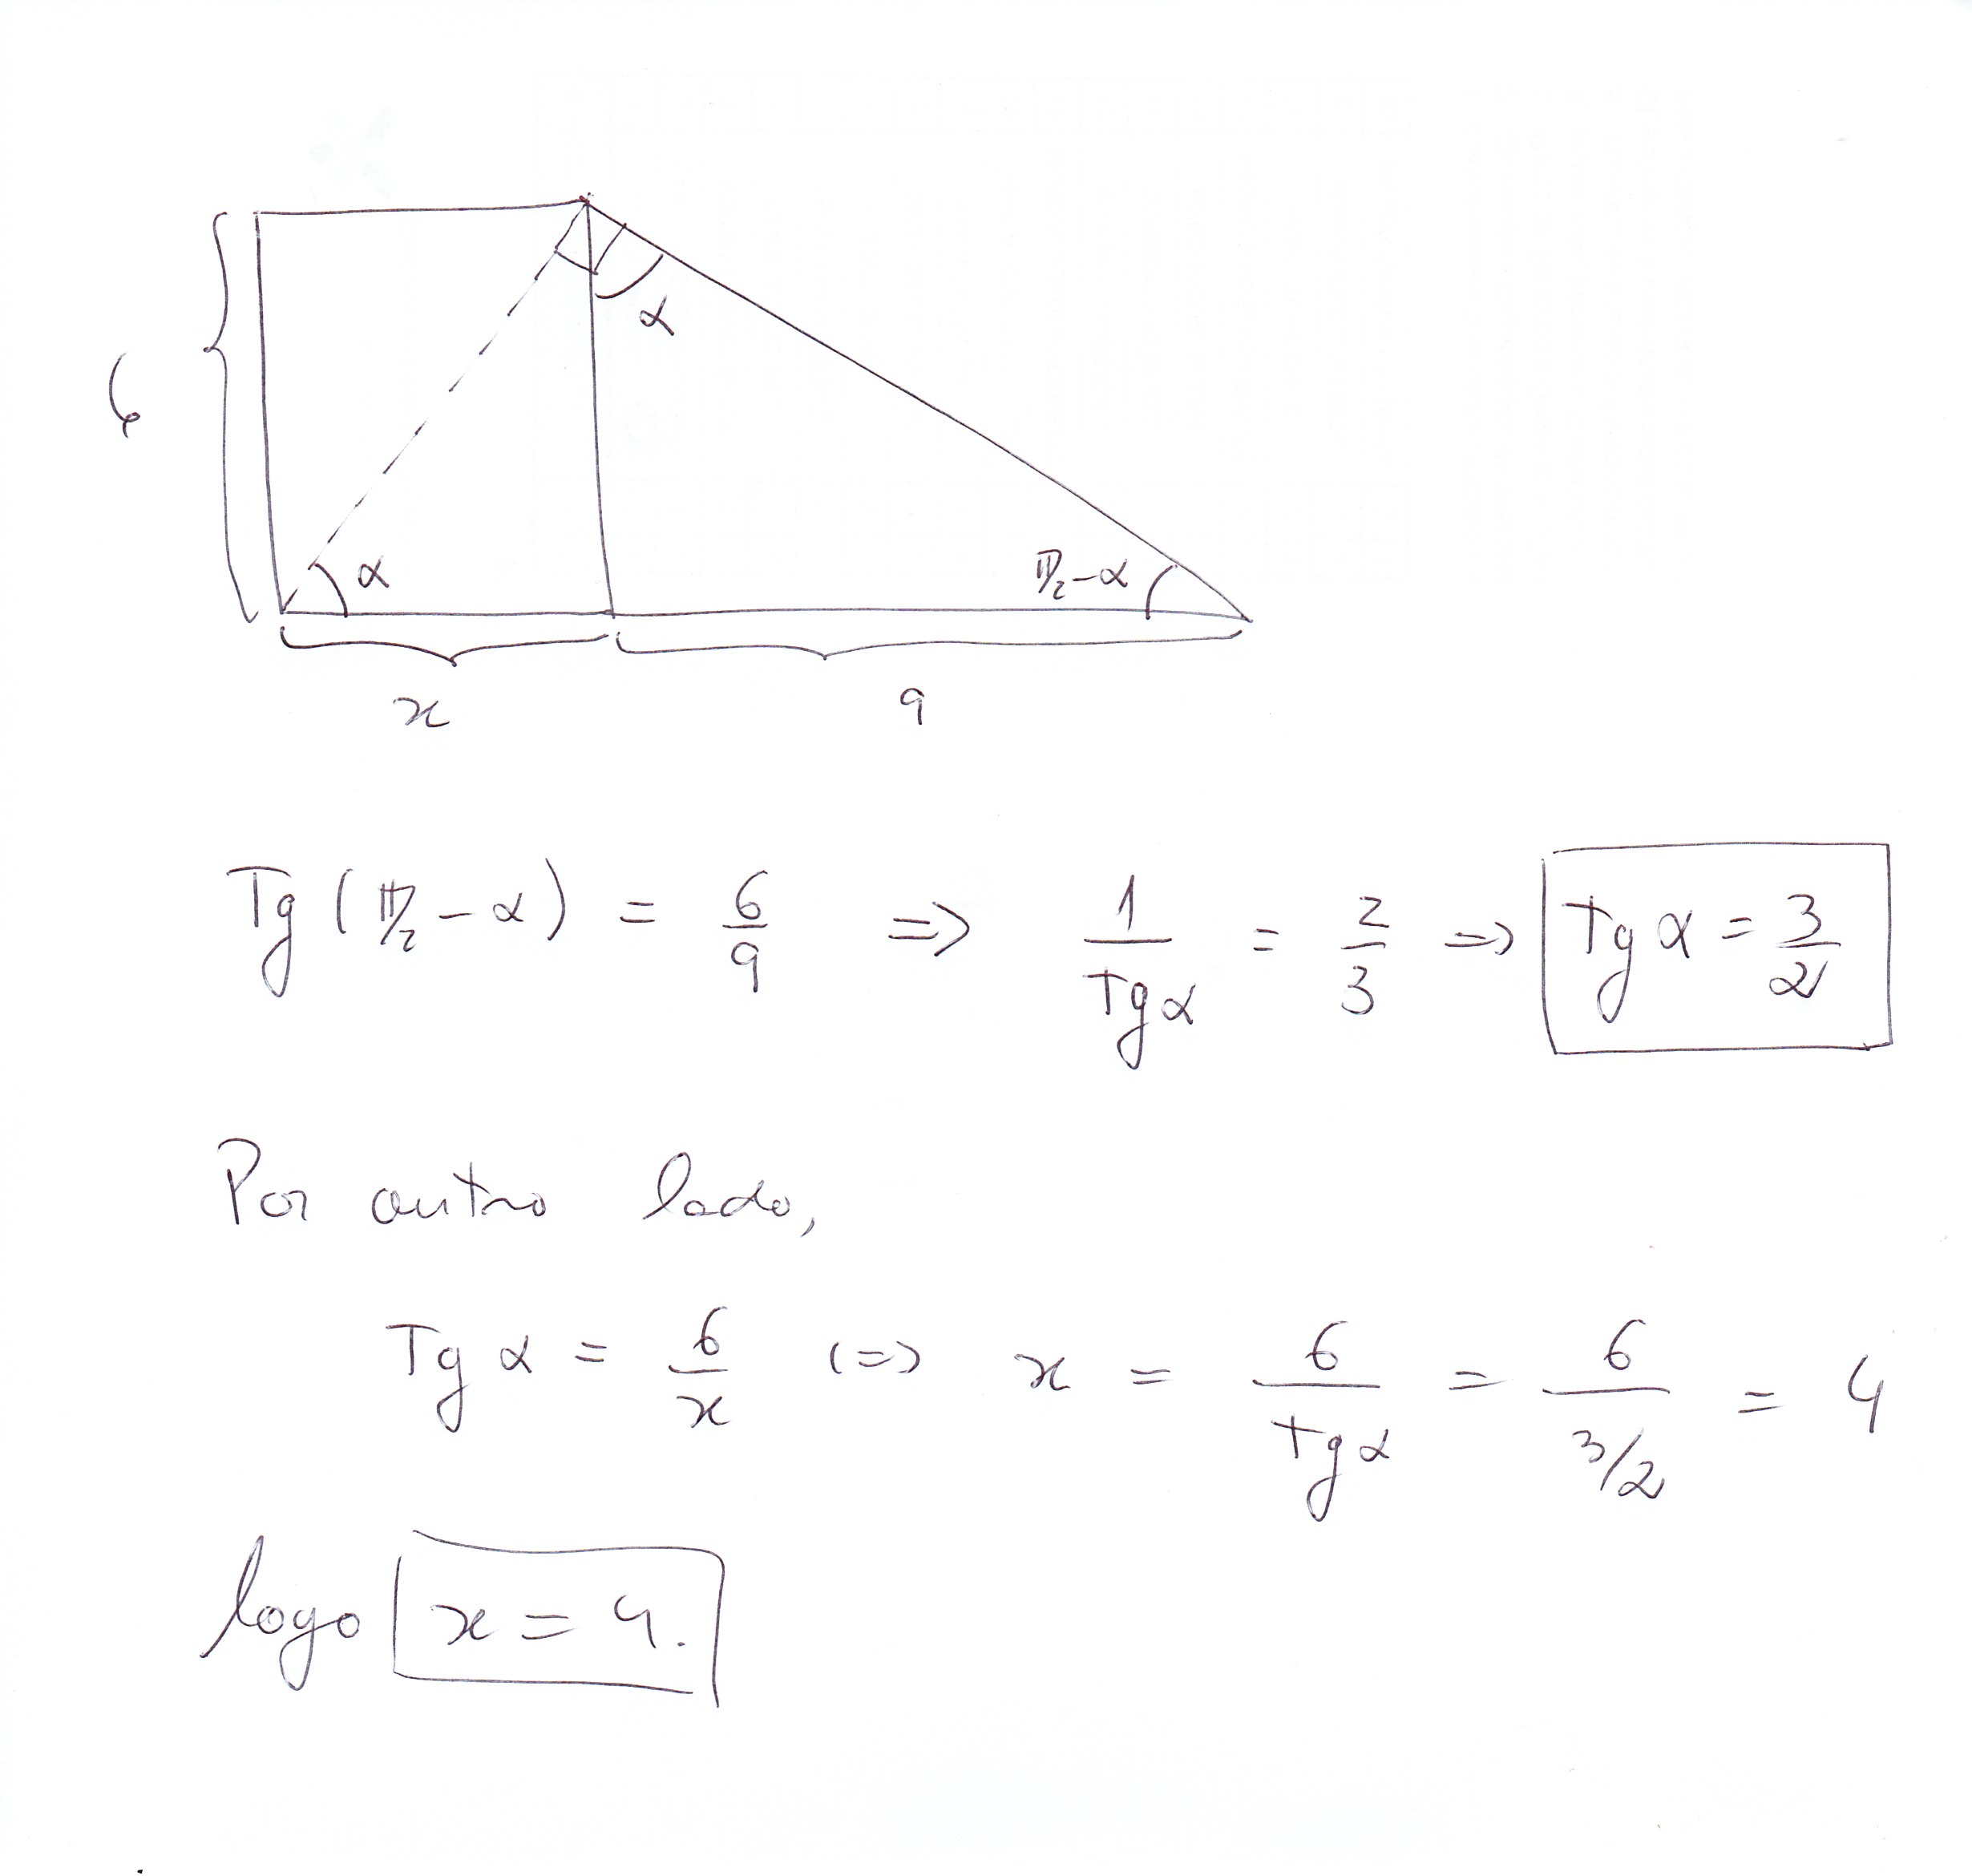 6
α
α
π/2-α
x
9
Tg (π/2 - α) = 6/9 => 1/Tg α = 2/3 => Tg α = 3/2
Por outro lado,
Tg α = 6/x <=> x = 6/tg α = 6/3/2 = 4
logo x = 4.